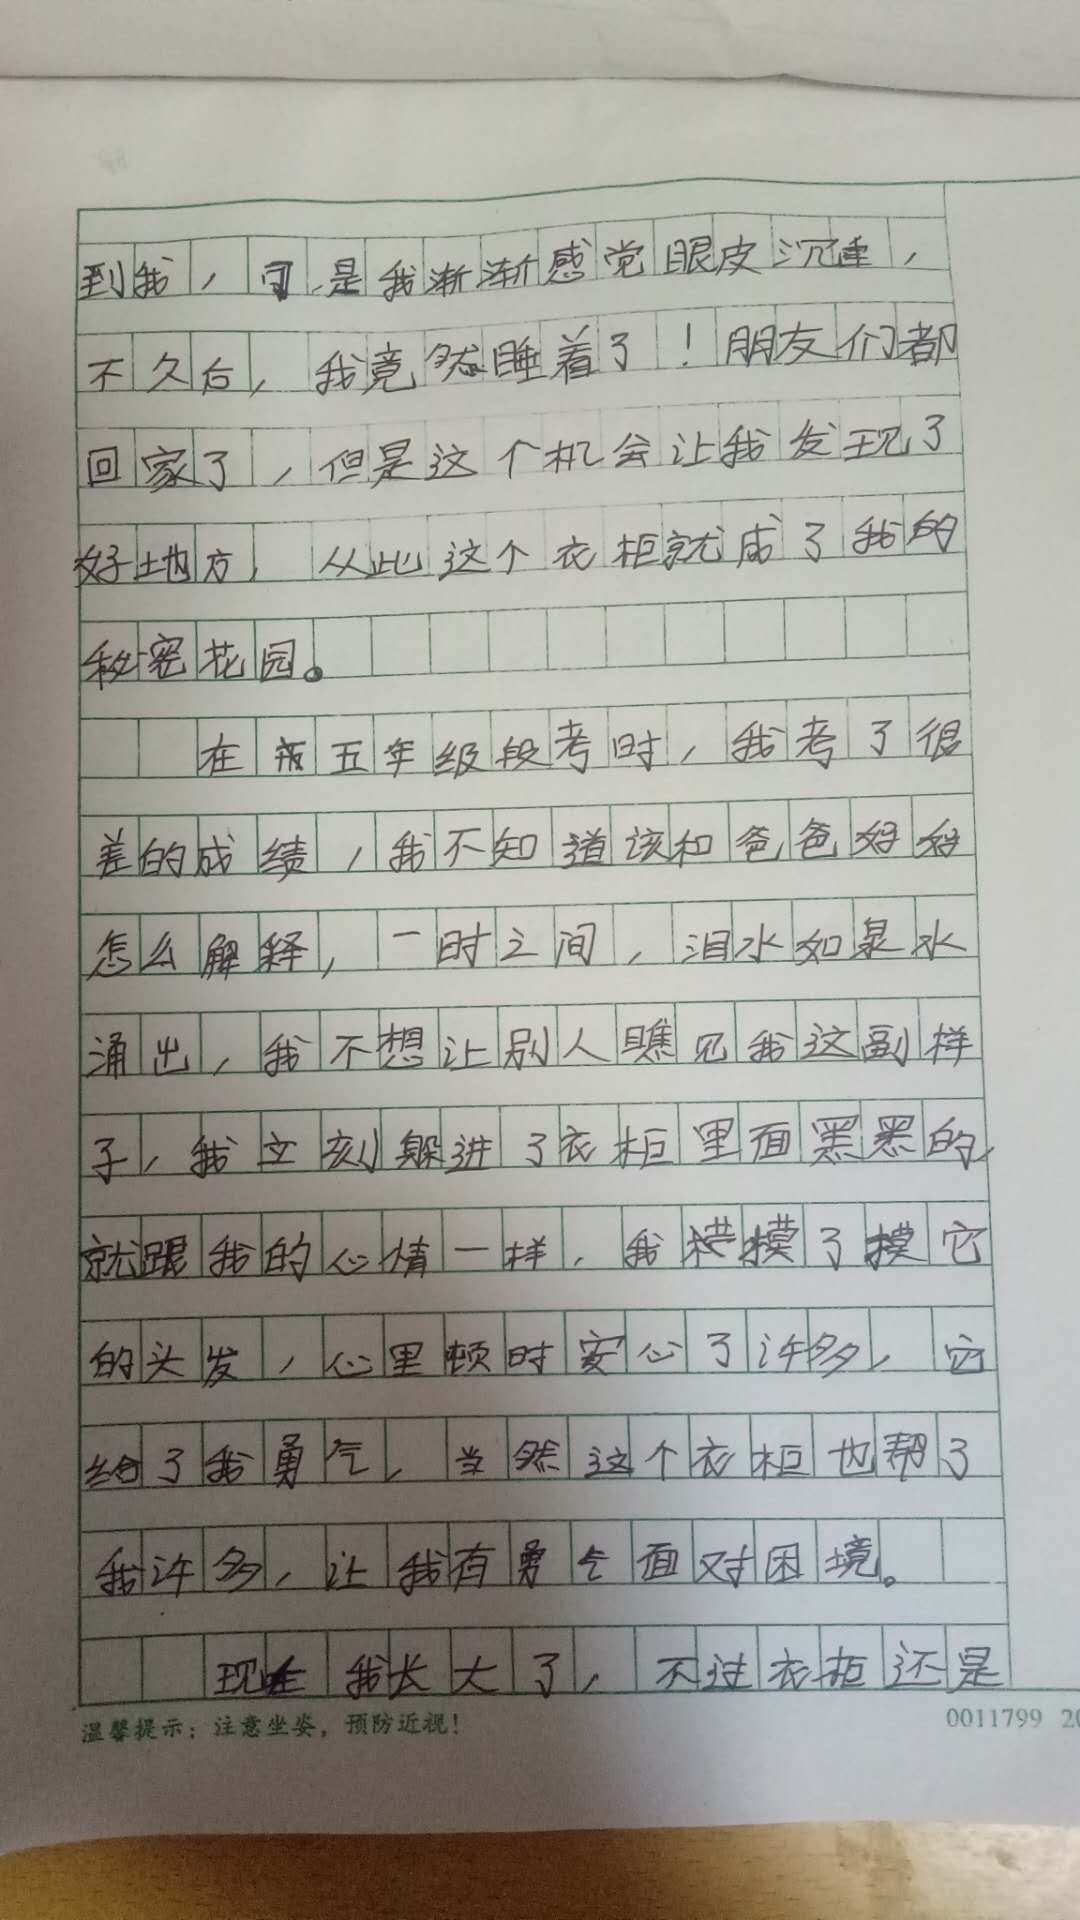 到我，可是我渐渐感觉眼皮沉重，
不久后，我竟然睡着了！朋友们都
回家了，但是这个机会让我发现了
好地方，从此这个衣柜就成了我的
秘密花园。
在我五年级段考时，我考了很
差的成绩，我不知道该和爸爸妈妈
怎么解释，一时之间，泪水如泉水
涌出，我不想让别人瞧见我这副样
子，我立刻躲进了衣柜里面黑悉的，
就跟我的心情一样，我摸了摸它
的头发，心里顿时安心了许多，它
给了我勇气，当然这个衣柜也帮了
我许多，让我有勇气面对困境。
现在我长大了，不过衣柜还是
温馨提示：注意坐姿，预防近视！
0011799 20